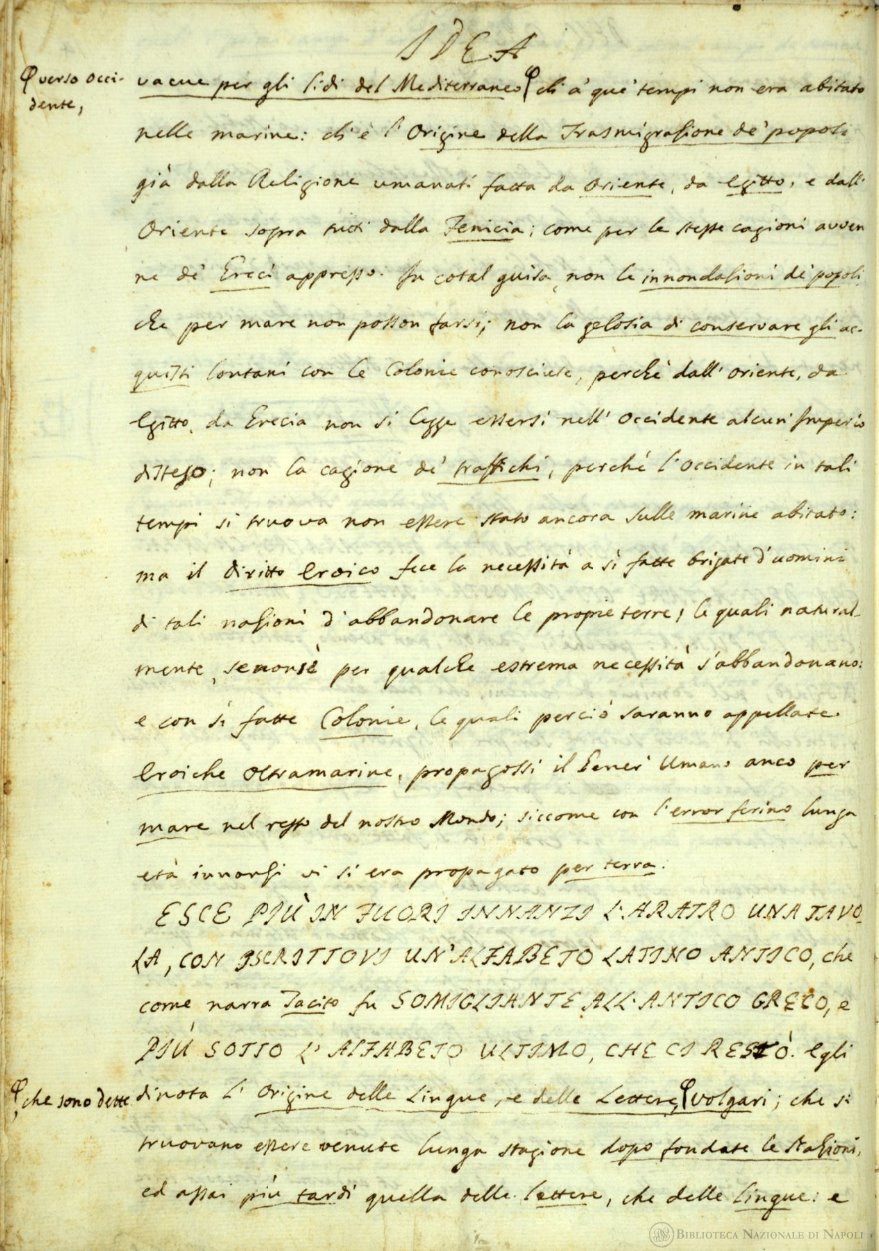 IDEA
φ verso occi-
dente,
vacue per gli lidi del Mediterraneo φ ch' a' que' tempi non era abitato
nelle marine: ch' è l' Origine della Trasmigrazione de' popoli
già dalla Religione umanati fatta da Oriente, da Egitto, e dall'
Oriente sopra tutti dalla Fenicia; come per le stesse cagioni avven-
ne de' Greci appresso. In cotal guisa, non le innondazioni de' popoli,
che per mare non posson farsi; non la gelosia di conservare gli ac-
quisti lontani con le Colonie conosciute, perchè dall' Oriente, da
Egitto, da Grecia non si legge essersi nell' Occidente alcun' Imperio
disteso; non la cagione de' traffichi, perchè l' Occidente in tali
tempi si truova non essere stato ancora sulle marine abitato:
ma il diritto eroico fece la necessità a sì fatte brigate d' uomini
di tali nazioni d' abbandonare le propie terre; le quali natural-
mente, senonsè per qualche estrema necessità s' abbandonano:
e con sì fatte Colonie, le quali perciò saranno appellate
Eroiche Oltramarine, propagossi il Gener' Umano anco per
mare nel resto del nostro Mondo; siccome con l' error ferino lunga
età innanzi vi si era propagato per terra.
ESCE PIÙ IN FUORI INNANZI L' ARATRO UNA TAVO-
LA, CON ISCRITTOVI UN' ALFABETO LATINO ANTICO, che
come narra Tacito fu SOMIGLIANTE ALL' ANTICO GRECO, e
PIÙ SOTTO L' ALFABETO ULTIMO, CHE CI RESTÒ. Egli
φ, che sono dette
dinota l' Origine delle Lingue, e delle Lettere, φ volgari; che si
truovano essere venute lunga stagione dopo fondate le Nazioni,
ed assai più tardi quella delle lettere, che delle lingue: e
BIBLIOTECA NAZIONALE DI NAPOLI